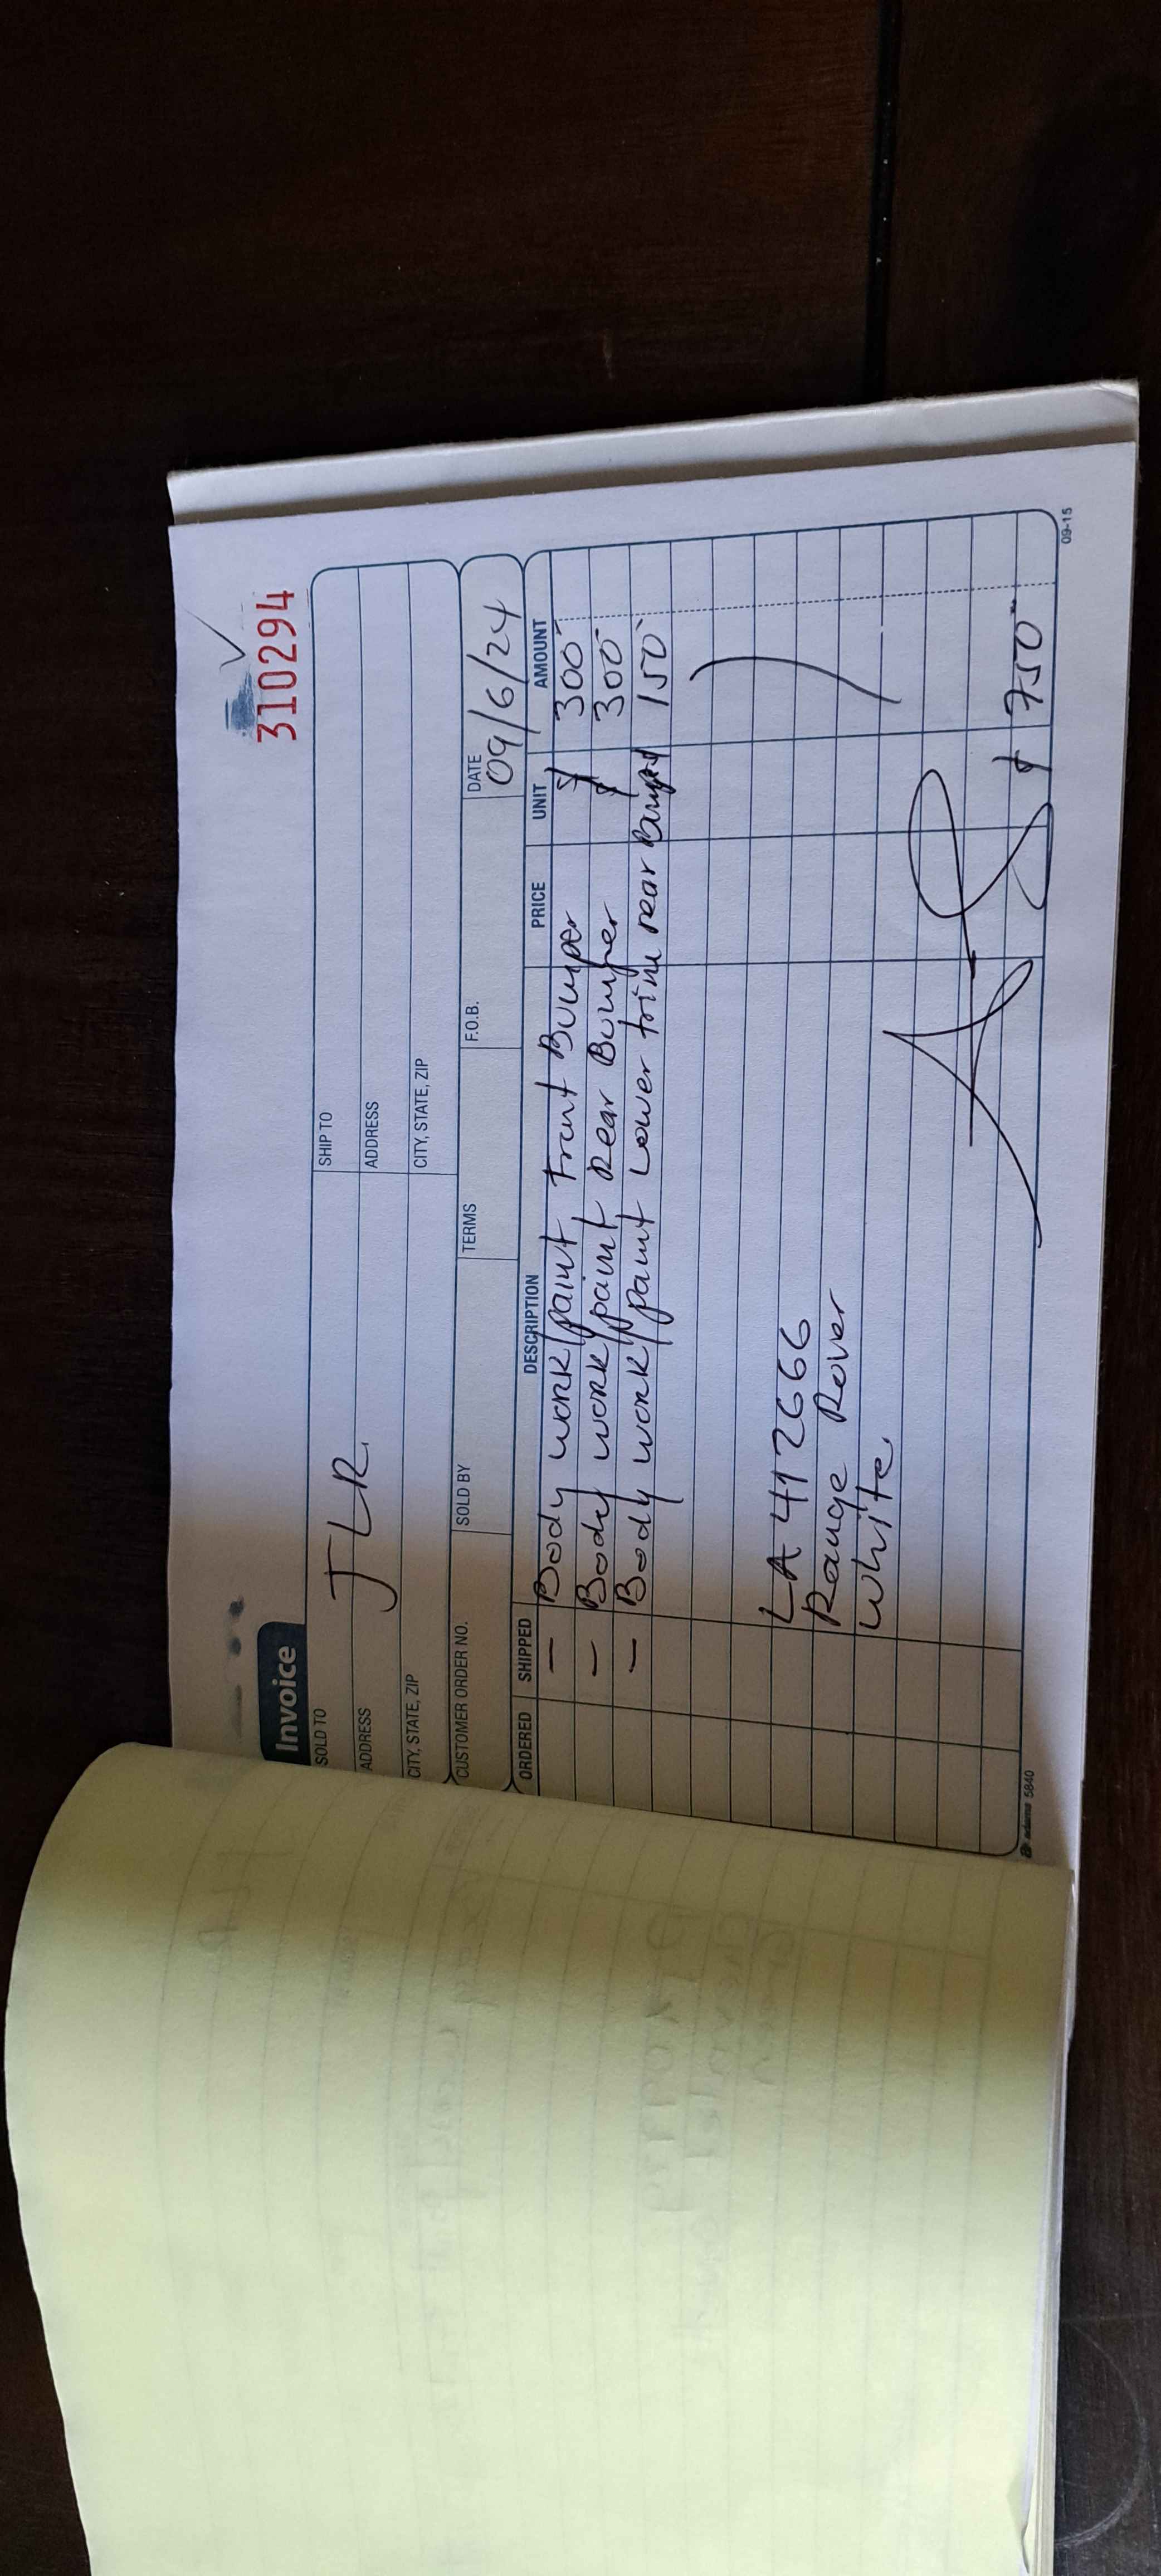 310294
Invoice
SOLD TO JLR
SHIP TO
ADDRESS
ADDRESS
CITY, STATE, ZIP
CITY, STATE, ZIP
CUSTOMER ORDER NO.
SOLD BY
TERMS
F.O.B.
DATE
09/6/24
ORDERED SHIPPED DESCRIPTION PRICE UNIT AMOUNT
- Body work/paint Front Bumper $ 300
- Body work/paint Rear Bumper $ 300
- Body work/paint Lower trim rear 150
LA412666
Range Rover
White
$ 750
adams 5840
09-15